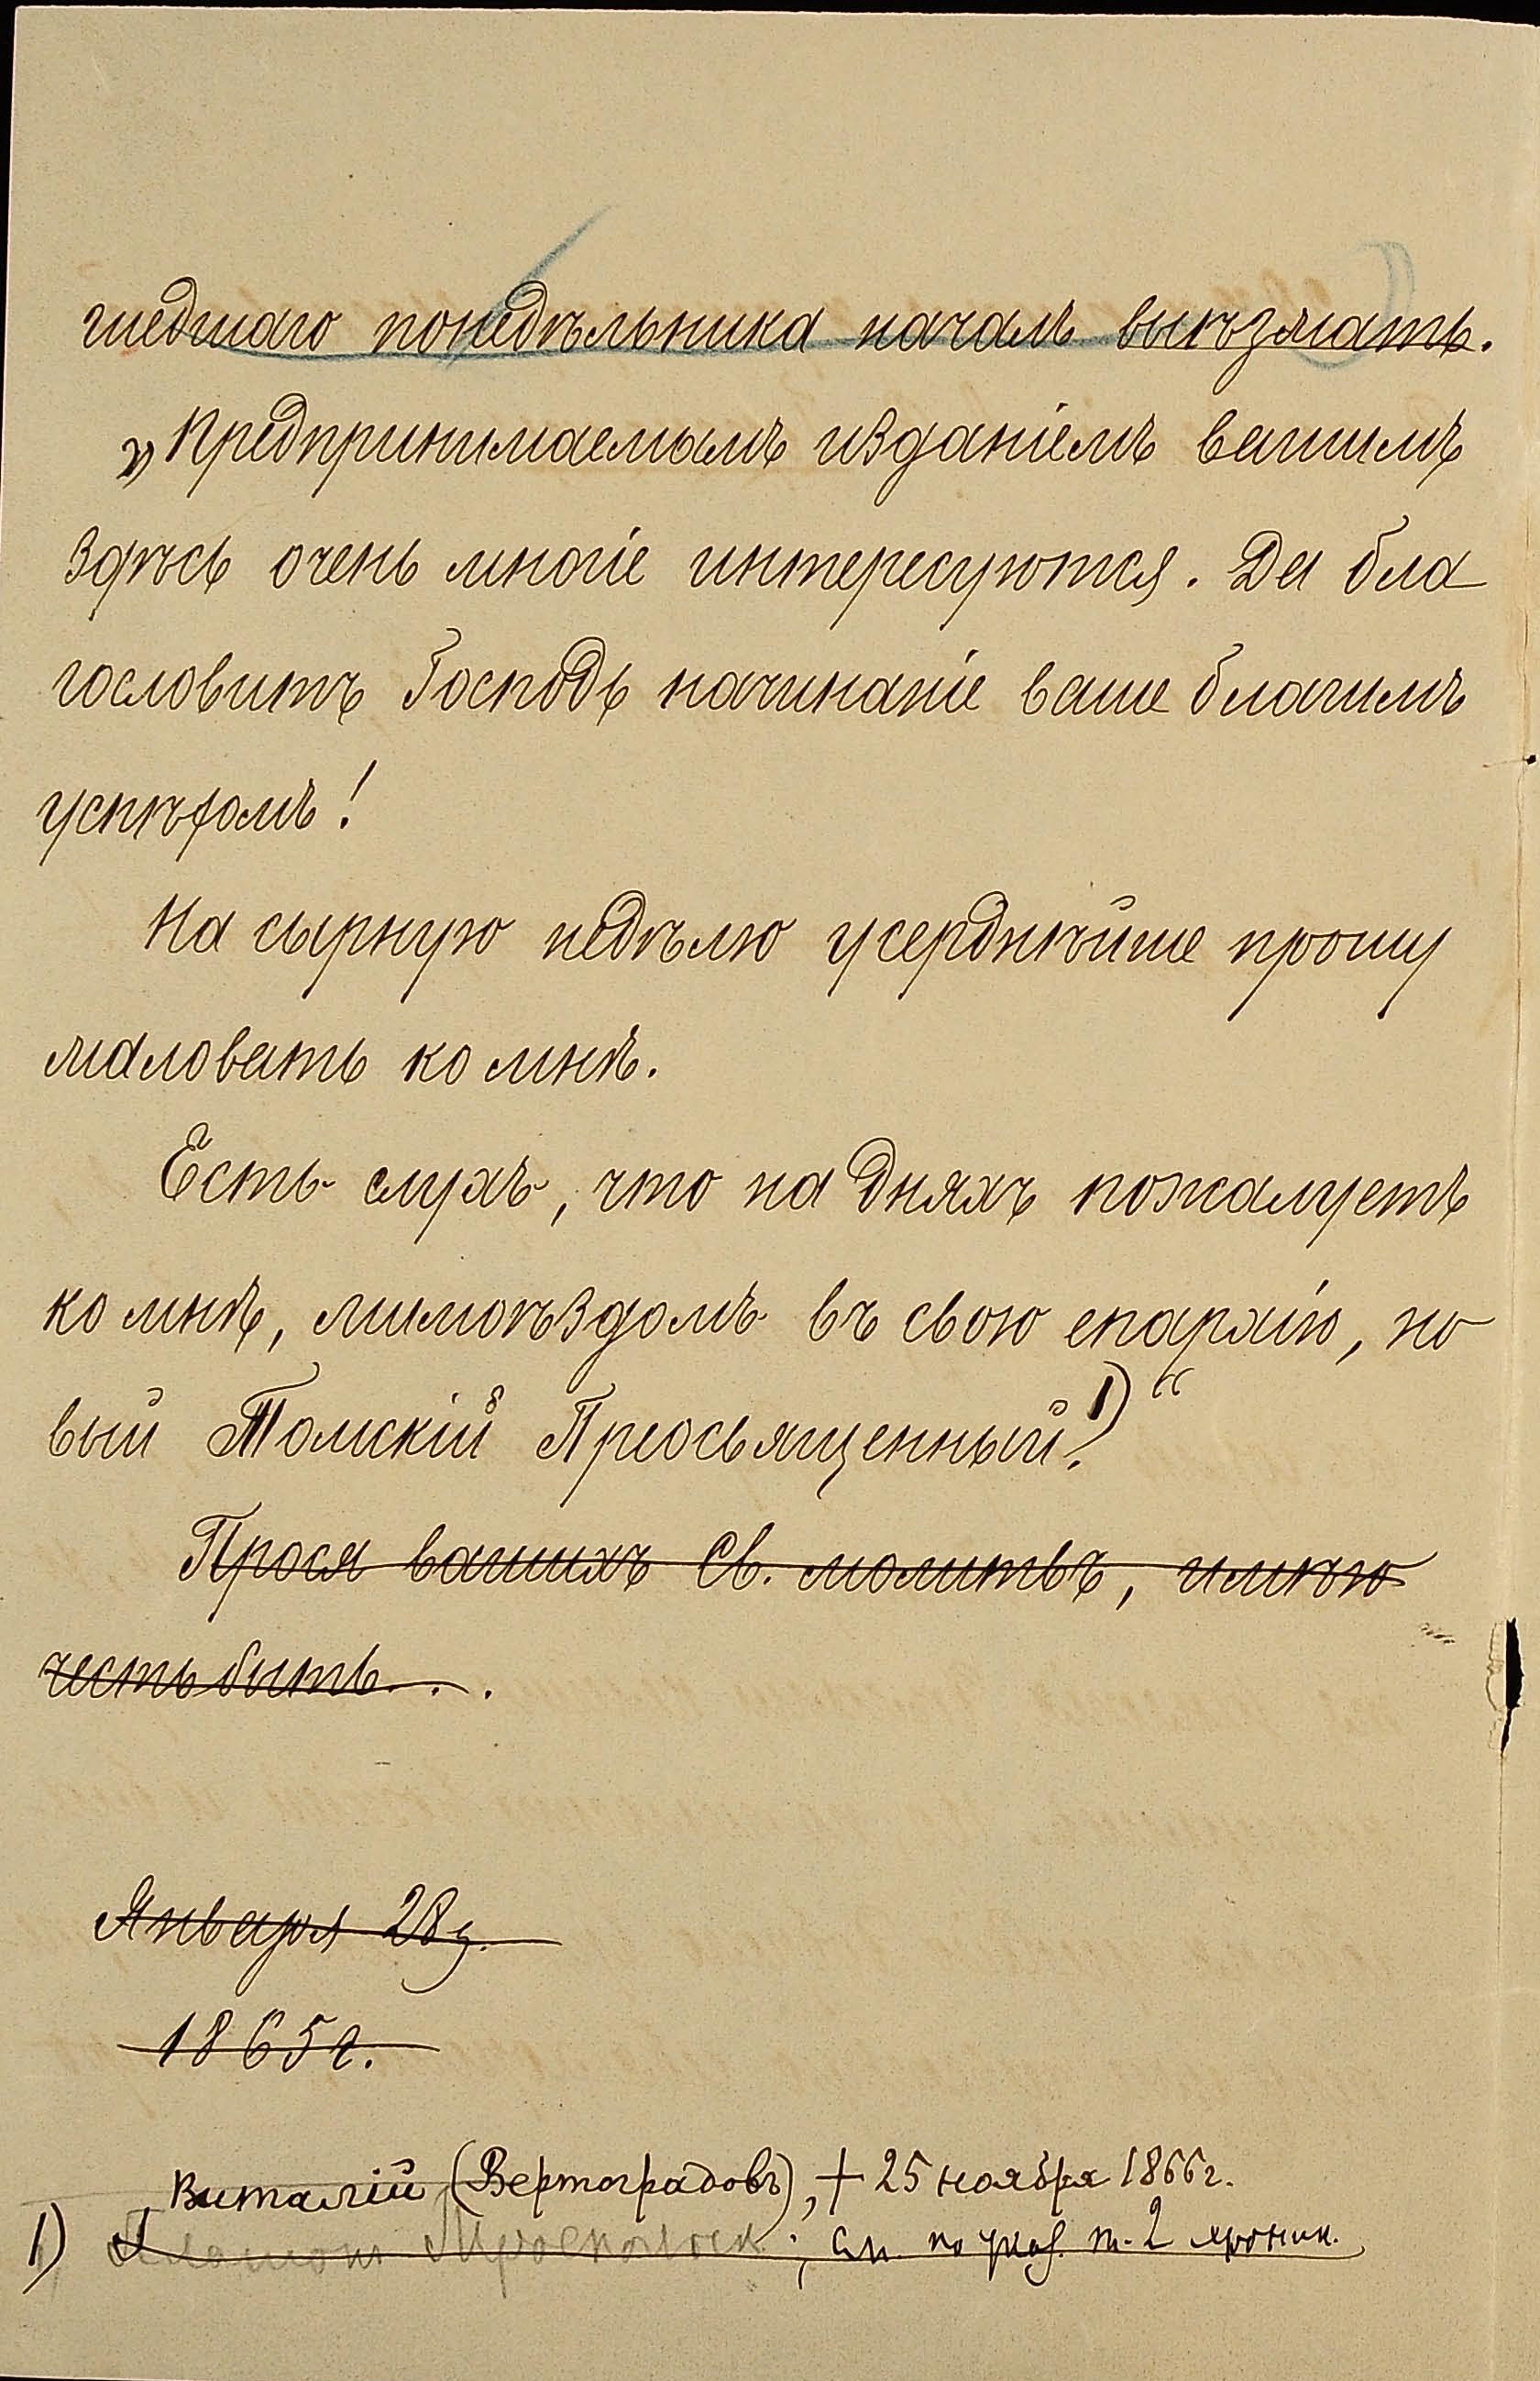 шедшаго понедѣльника началъ выѣзжать.
„Предпринимаемымъ изданіемъ вашимъ
здѣсь очень многіе интересуются. Да бла
гословитъ Господь начинаніе ваше благимъ
успѣхомъ!
На сырную недѣлю усерднѣйше прошу
жаловать ко мнѣ.
Есть слухъ, что на дняхъ пожалуетъ
ко мнѣ, мимоѣздомъ въ свою епархію, но
вый Томскій Преосвященный.1)“
Прося вашихъ Св. молитвъ, имѣю
честь быть...
Января 28 д.
1865 г.
Виталій (Вертоградовъ), + 25 ноября 1866 г.
1) см. по указ. т. 2 хроник.